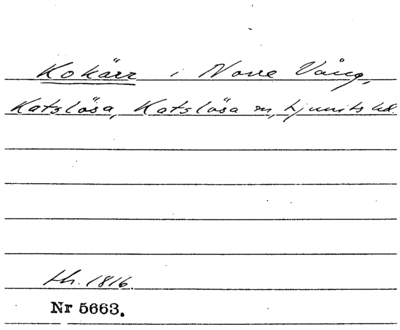 Kokärr i Norre Vång,
Katslösa, Katslösa sn, Ljunits hd.
Lh. 1816.
Nr 5663.